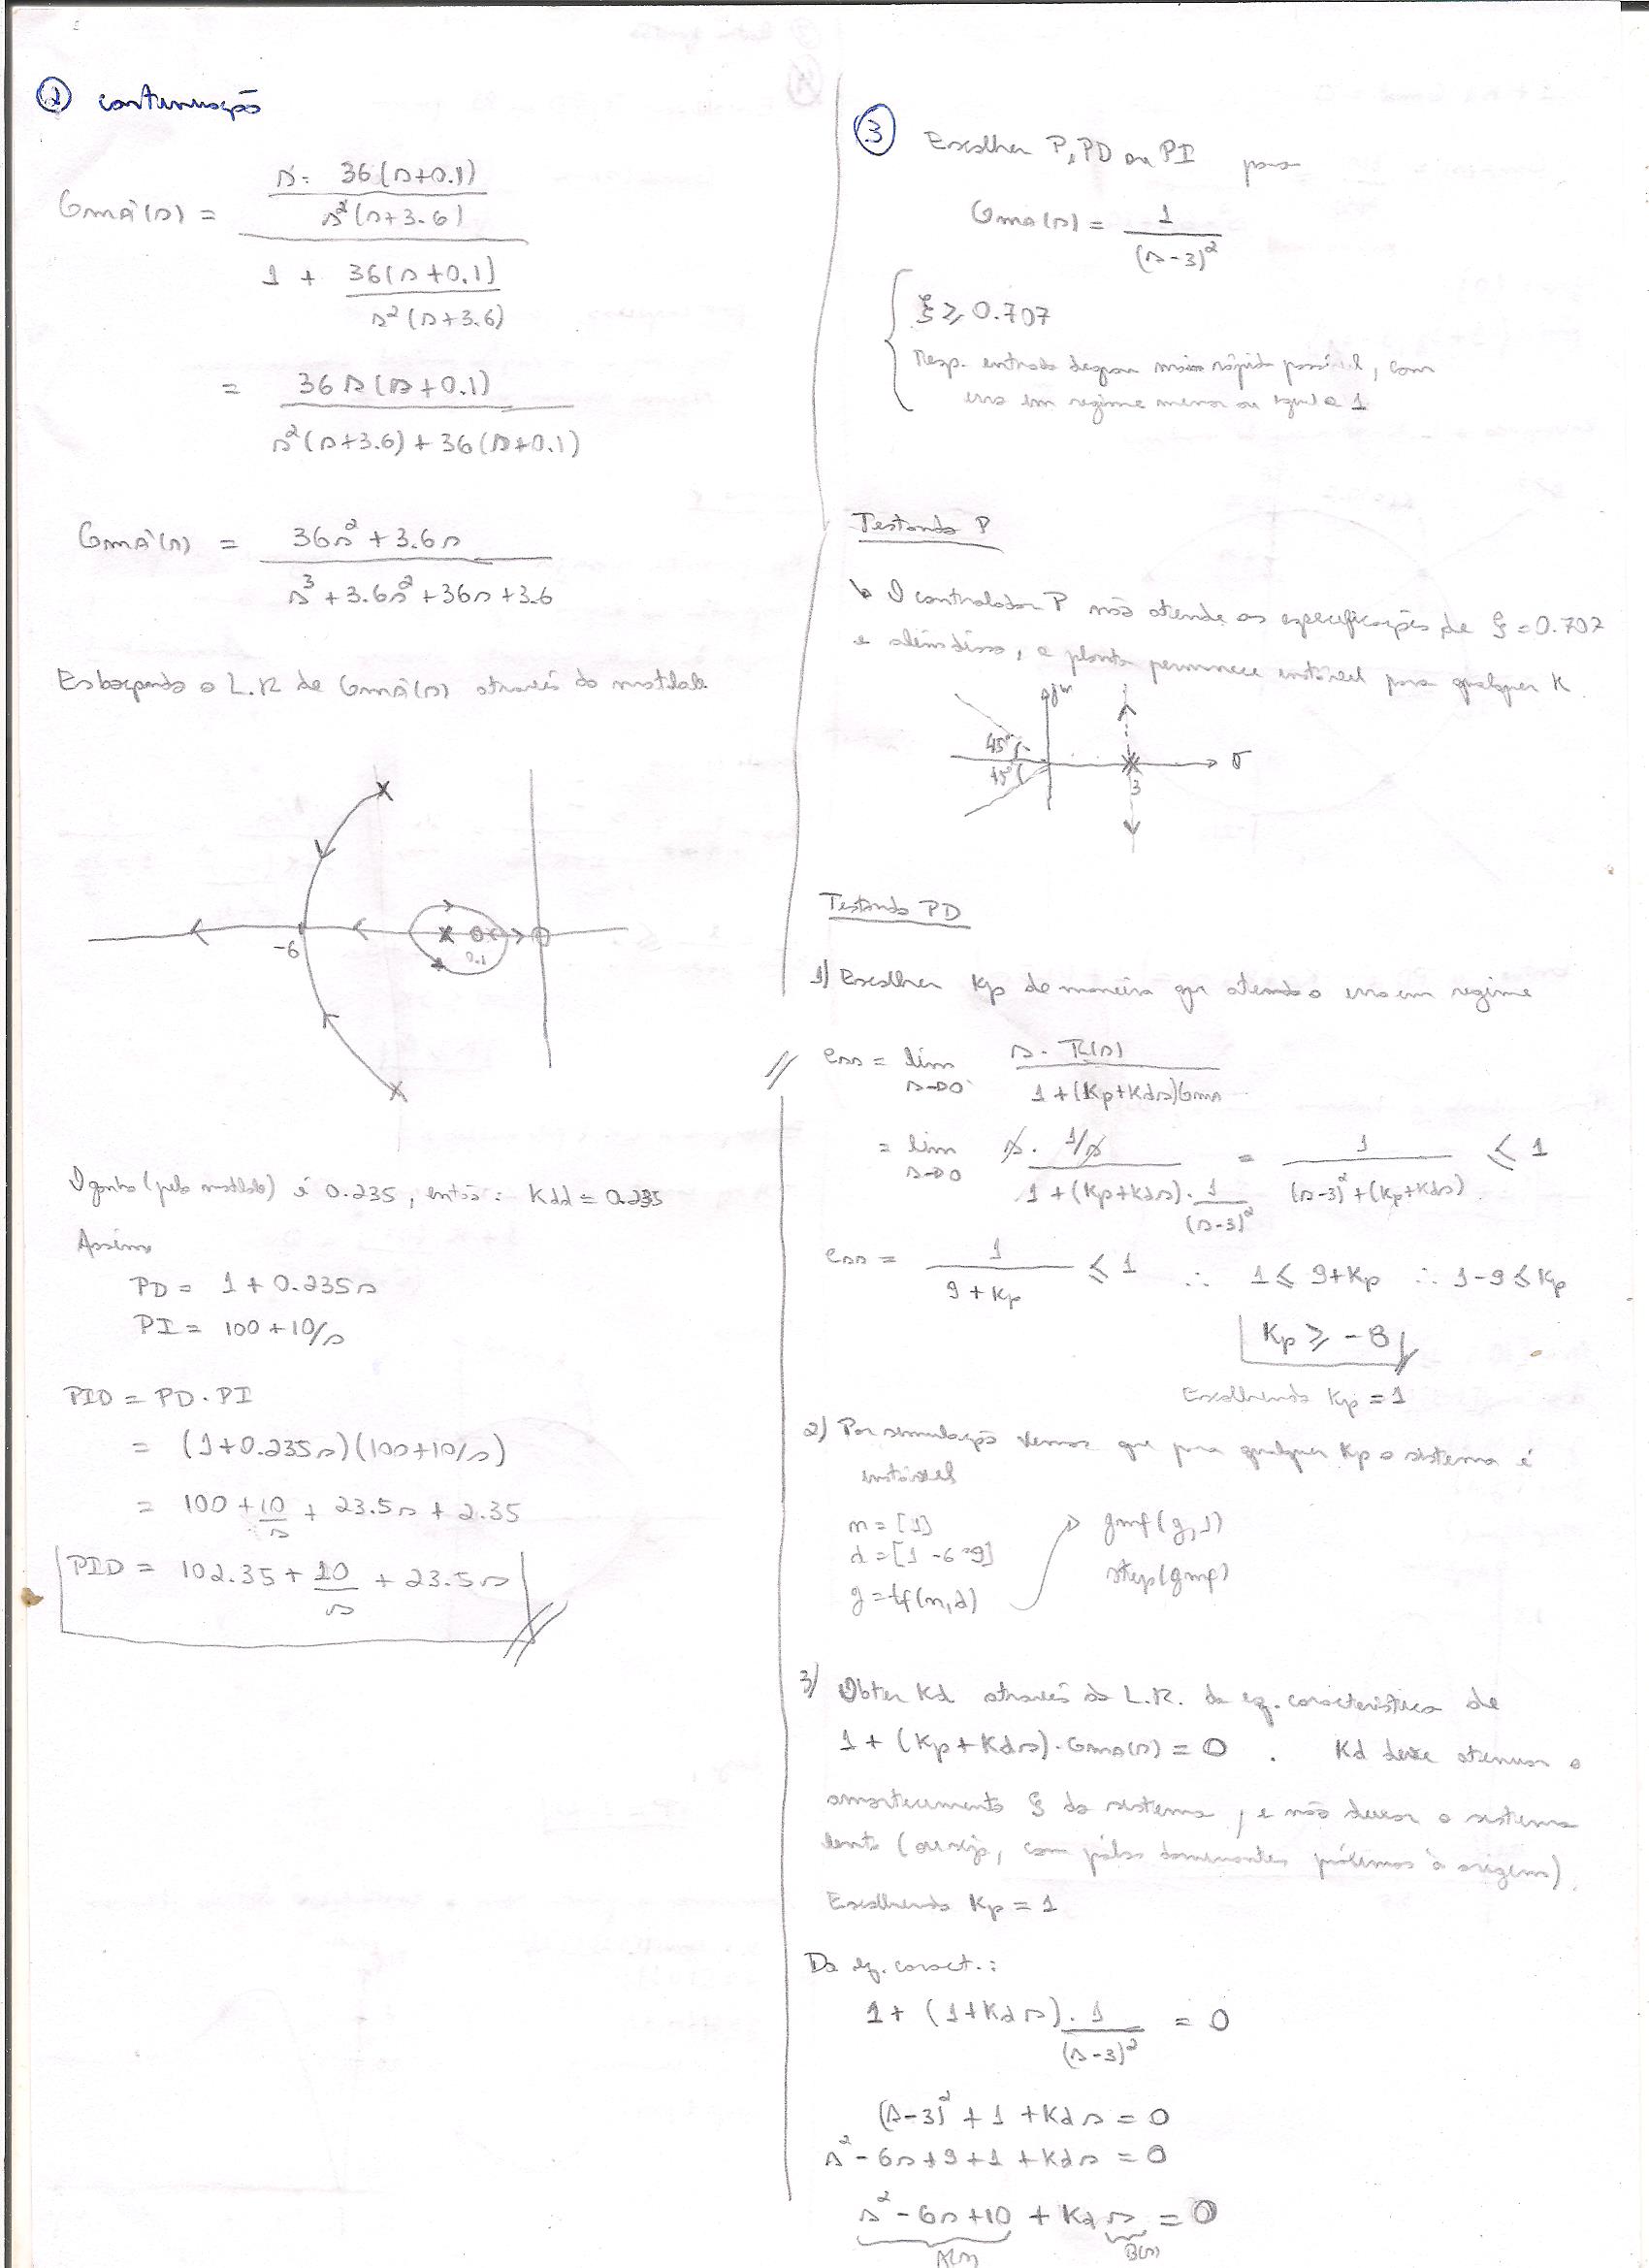 ② continuação
GMA'(s) = s · 36(s+0.1) / s²(s+3.6)
1 + 36(s+0.1) / s²(s+3.6)
= 36s(s+0.1) / s²(s+3.6)+36(s+0.1)
GMA'(s) = 36s²+3.6s / s³+3.6s²+36s+3.6
Esboçando o L.R de GMA'(s) através do matlab.
-6
0.1
O ganho (pelo matlab) é 0.235, então: Kdd = 0.235
Assim
PD = 1 + 0.235s
PI = 100 + 10/s
PID = PD . PI
= (1+0.235s)(100+10/s)
= 100 + 10/s + 23.5s + 2.35
PID = 102.35 + 10/s + 23.5s
③ Escolher P, PD ou PI para
Gma(s) = 1/(s-3)²
ξ ≥ 0.707
Resp. entrada degrau mais rápida possível, com
erro em regime menor ou igual a 1
Testando P
↳ O controlador P não atende as especificações de ξ=0.707
e além disso, a planta permanece instável para qualquer K.
jw
45°
45°
3
σ
Testando PD
1) Escolher Kp de maneira que atenda o erro em regime
ess = lim s→0 s . R(s) / 1+(Kp+Kds)Gma
= lim s→0 s . 1/s / 1+(Kp+Kds).1/(s-3)² = 1 / (s-3)²+(Kp+Kds) ≤ 1
ess = 1 / 9+Kp ≤ 1 ∴ 1 ≤ 9+Kp ∴ 1-9 ≤ Kp
Kp ≥ -8
Escolhendo Kp = 1
2) Por simulação vemos que para qualquer Kp o sistema é
instável
n = [1]
d = [1 -6 9]
g = tf(n,d)
gmf(g,1)
step(gmf)
3) Obter Kd através do L.R. da eq. característica de
1 + (Kp+Kds).Gma(s) = 0 . Kd deve atenuar o
amortecimento ξ do sistema, e não deixar o sistema
lento (ou seja, com pólos dominantes próximos à origem).
Escolhendo Kp = 1
Da eq. caract.:
1 + (1+Kds) . 1/(s-3)² = 0
(s-3)² + 1 + Kds = 0
s² - 6s + 9 + 1 + Kds = 0
s² - 6s + 10 + Kd s = 0
A(s) B(s)